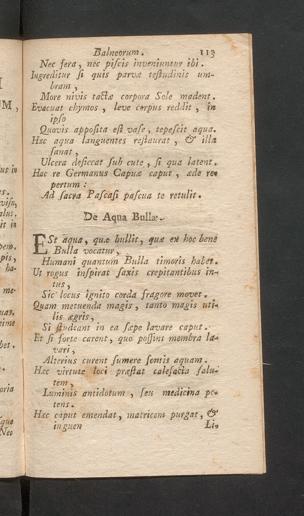 Balneorum. 113
Nec fera, nec piscis inveniuntur ibi.
Ingreditur si quis parvæ testudinis um-
bram,
More nivis tactæ corpora Sole madent.
Evacuat chymos, leve corpus reddit, in
ipso
Quavis apposita est vase, tepescit aqua.
Hæc aqua languentes restaurat, & illa
sanat,
Ulcera desiccat sub cute, si qua latent.
Hac re Germanus Capuæ caput, æde re-
pertum:
Ad sacra Pascasi pascua te retulit.
De Aqua Bullæ.
ESt aqua, quæ bullit, quæ ex hoc bene
Bulla vocatur,
Humani quantum Bulla timoris habet.
Ut rogus inspirat saxis crepitantibus in-
tus,
Sic locus ignito corda fragore movet.
Quam metuenda magis, tanto magis uti-
lis ægris,
Si studeant in ea sæpe lavare caput.
Et si forte carent, quo possint membra la-
vari,
Alterius curent sumere fontis aquam.
Hæc virtute loci præstat calefacta salu-
tem,
Luminis antidotum, seu medicina po-
tens.
Hæc caput emendat, matricem purgat, &
inguen
Li-